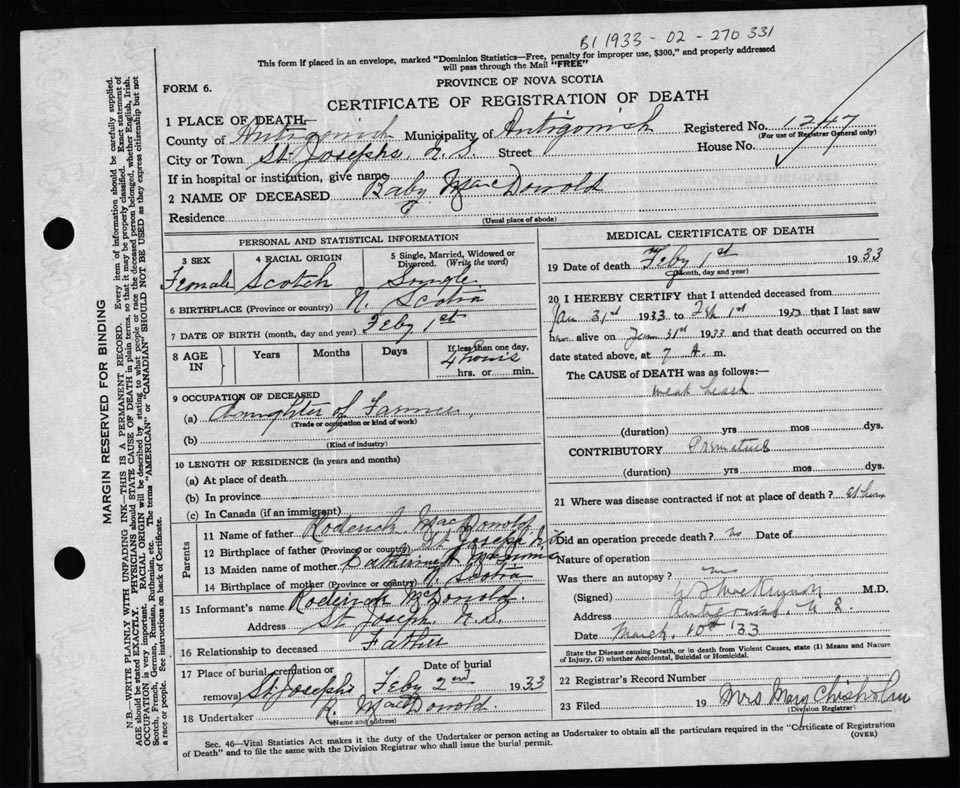 B1 1933 - 02 - 270 331
This form if placed in an envelope, marked "Dominion Statistics—Free, penalty for improper use, $300," and properly addressed
will pass through the Mail "FREE"
PROVINCE OF NOVA SCOTIA
FORM 6.
CERTIFICATE OF REGISTRATION OF DEATH
1 PLACE OF DEATH—
County of Antigonish Municipality of Antigonish Registered No. 1247
(For use of Registrar General only)
City or Town St Josephs, N.S. Street House No.
If in hospital or institution, give name
2 NAME OF DECEASED Baby MacDonold
Residence
(Usual place of abode)
PERSONAL AND STATISTICAL INFORMATION
3 SEX 4 RACIAL ORIGIN 5 Single, Married, Widowed or
Divorced. (Write the word)
Female Scotch Single
6 BIRTHPLACE (Province or country) N. Scotia
7 DATE OF BIRTH (month, day and year) Feby 1st
8 AGE IN Years Months Days If less than one day,
4 hours
hrs. or min.
9 OCCUPATION OF DECEASED
(a) daughter of Farmer
(Trade or occupation or kind of work)
(b)
(Kind of industry)
10 LENGTH OF RESIDENCE (in years and months)
(a) At place of death
(b) In province
(c) In Canada (if an immigrant)
Parents
11 Name of father Roderick MacDonold
12 Birthplace of father (Province or country) St Joseph N.S.
13 Maiden name of mother Catherine
14 Birthplace of mother (Province or country) N. Scotia
15 Informant's name Roderick McDonold.
Address St Joseph. N.S.
16 Relationship to deceased Father
17 Place of burial, cremation or removal Date of burial
St Josephs Feby 2nd 1933
18 Undertaker R. MacDonold.
(Name and address)
MEDICAL CERTIFICATE OF DEATH
19 Date of death Feby 1st 1933
(Month, day and year)
20 I HEREBY CERTIFY that I attended deceased from
Jan 31st 1933 to Feb 1st 1933 that I last saw
her alive on Jan 31st 1933 and that death occurred on
date stated above, at 7 A. m.
The CAUSE of DEATH was as follows:—
weak heart
(duration) yrs mos dys.
CONTRIBUTORY Premature
(duration) yrs mos dys.
21 Where was disease contracted if not at place of death?
Did an operation precede death? no Date of
Nature of operation
Was there an autopsy? no
(Signed) M.D.
Address Antigonish, N.S.
Date March. 10th '33
State the Disease causing Death, or in death from Violent Causes, state (1) Means and Nature
of Injury, (2) whether Accidental, Suicidal or Homicidal.
22 Registrar's Record Number
23 Filed 19 Mrs Mary Chisholm
(Division Registrar)
Sec. 46—Vital Statistics Act makes it the duty of the Undertaker or person acting as Undertaker to obtain all the particulars required in the "Certificate of Registration
of Death" and to file the same with the Division Registrar who shall issue the burial permit.
(OVER)
MARGIN RESERVED FOR BINDING
N.B.—WRITE PLAINLY WITH UNFADING INK—THIS IS A PERMANENT RECORD. Every item of information should be carefully supplied.
AGE should be stated EXACTLY. PHYSICIANS should STATE CAUSE OF DEATH in plain terms, so that it may be properly classified. Exact statement of
OCCUPATION is very important. RACIAL ORIGIN will be described by stating to what people or race the deceased person belonged, whether English, Irish,
Scotch, French, German, Russian, Ruthenian, etc. The terms "AMERICAN" or "CANADIAN" SHOULD NOT BE USED as they express citizenship but not
a race or people. See instructions on back of Certificate.